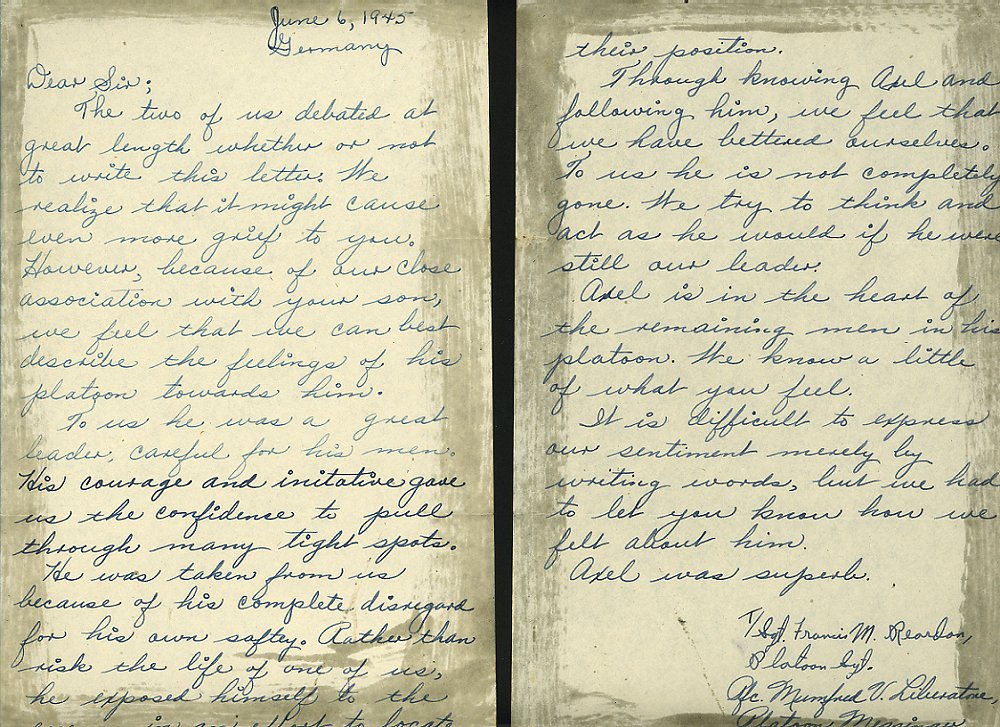 June 6, 1945
Germany
Dear Sir;
The two of us debated at
great length whether or not
to write this letter. We
realize that it might cause
even more grief to you.
However, because of our close
association with your son,
we feel that we can best
describe the feelings of his
platoon towards him.
To us he was a great
leader, careful for his men.
His courage and initative gave
us the confidense to pull
through many tight spots.
He was taken from us
because of his complete disregard
for his own saftey. Rather than
risk the life of one of us,
he exposed himself to the
in an effort to locate
their position.
Through knowing Axel and
following him, we feel that
we have bettered ourselves.
To us he is not completely
gone. We try to think and
act as he would if he were
still our leader.
Axel is in the heart of
the remaining men in his
platoon. We know a little
of what you feel.
It is difficult to express
our sentiment merely by
writing words, but we had
to let you know how we
felt about him.
Axel was superb.
T/Sgt. Francis M. Reardon,
Platoon Sgt.
Pfc Mumfred V. Liberatore,
Platoon